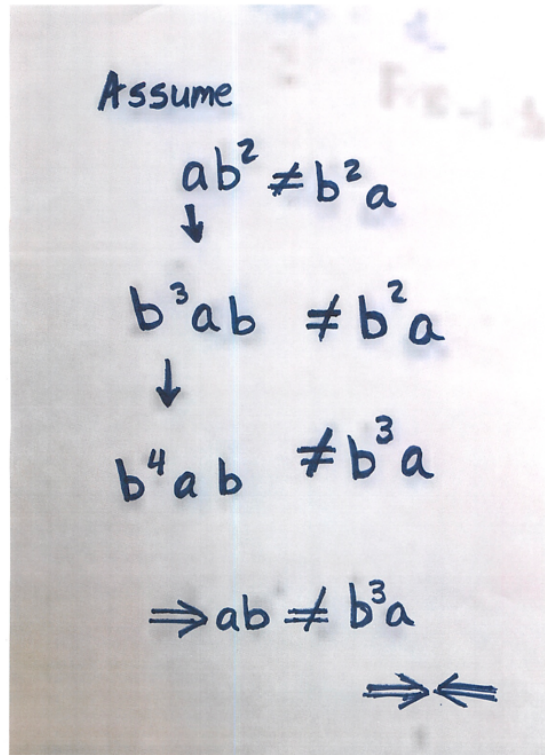 Assume
ab² ≠ b²a
↓
b³ab ≠ b²a
↓
b⁴ab ≠ b³a
⇒ ab ≠ b³a
⇒⇐